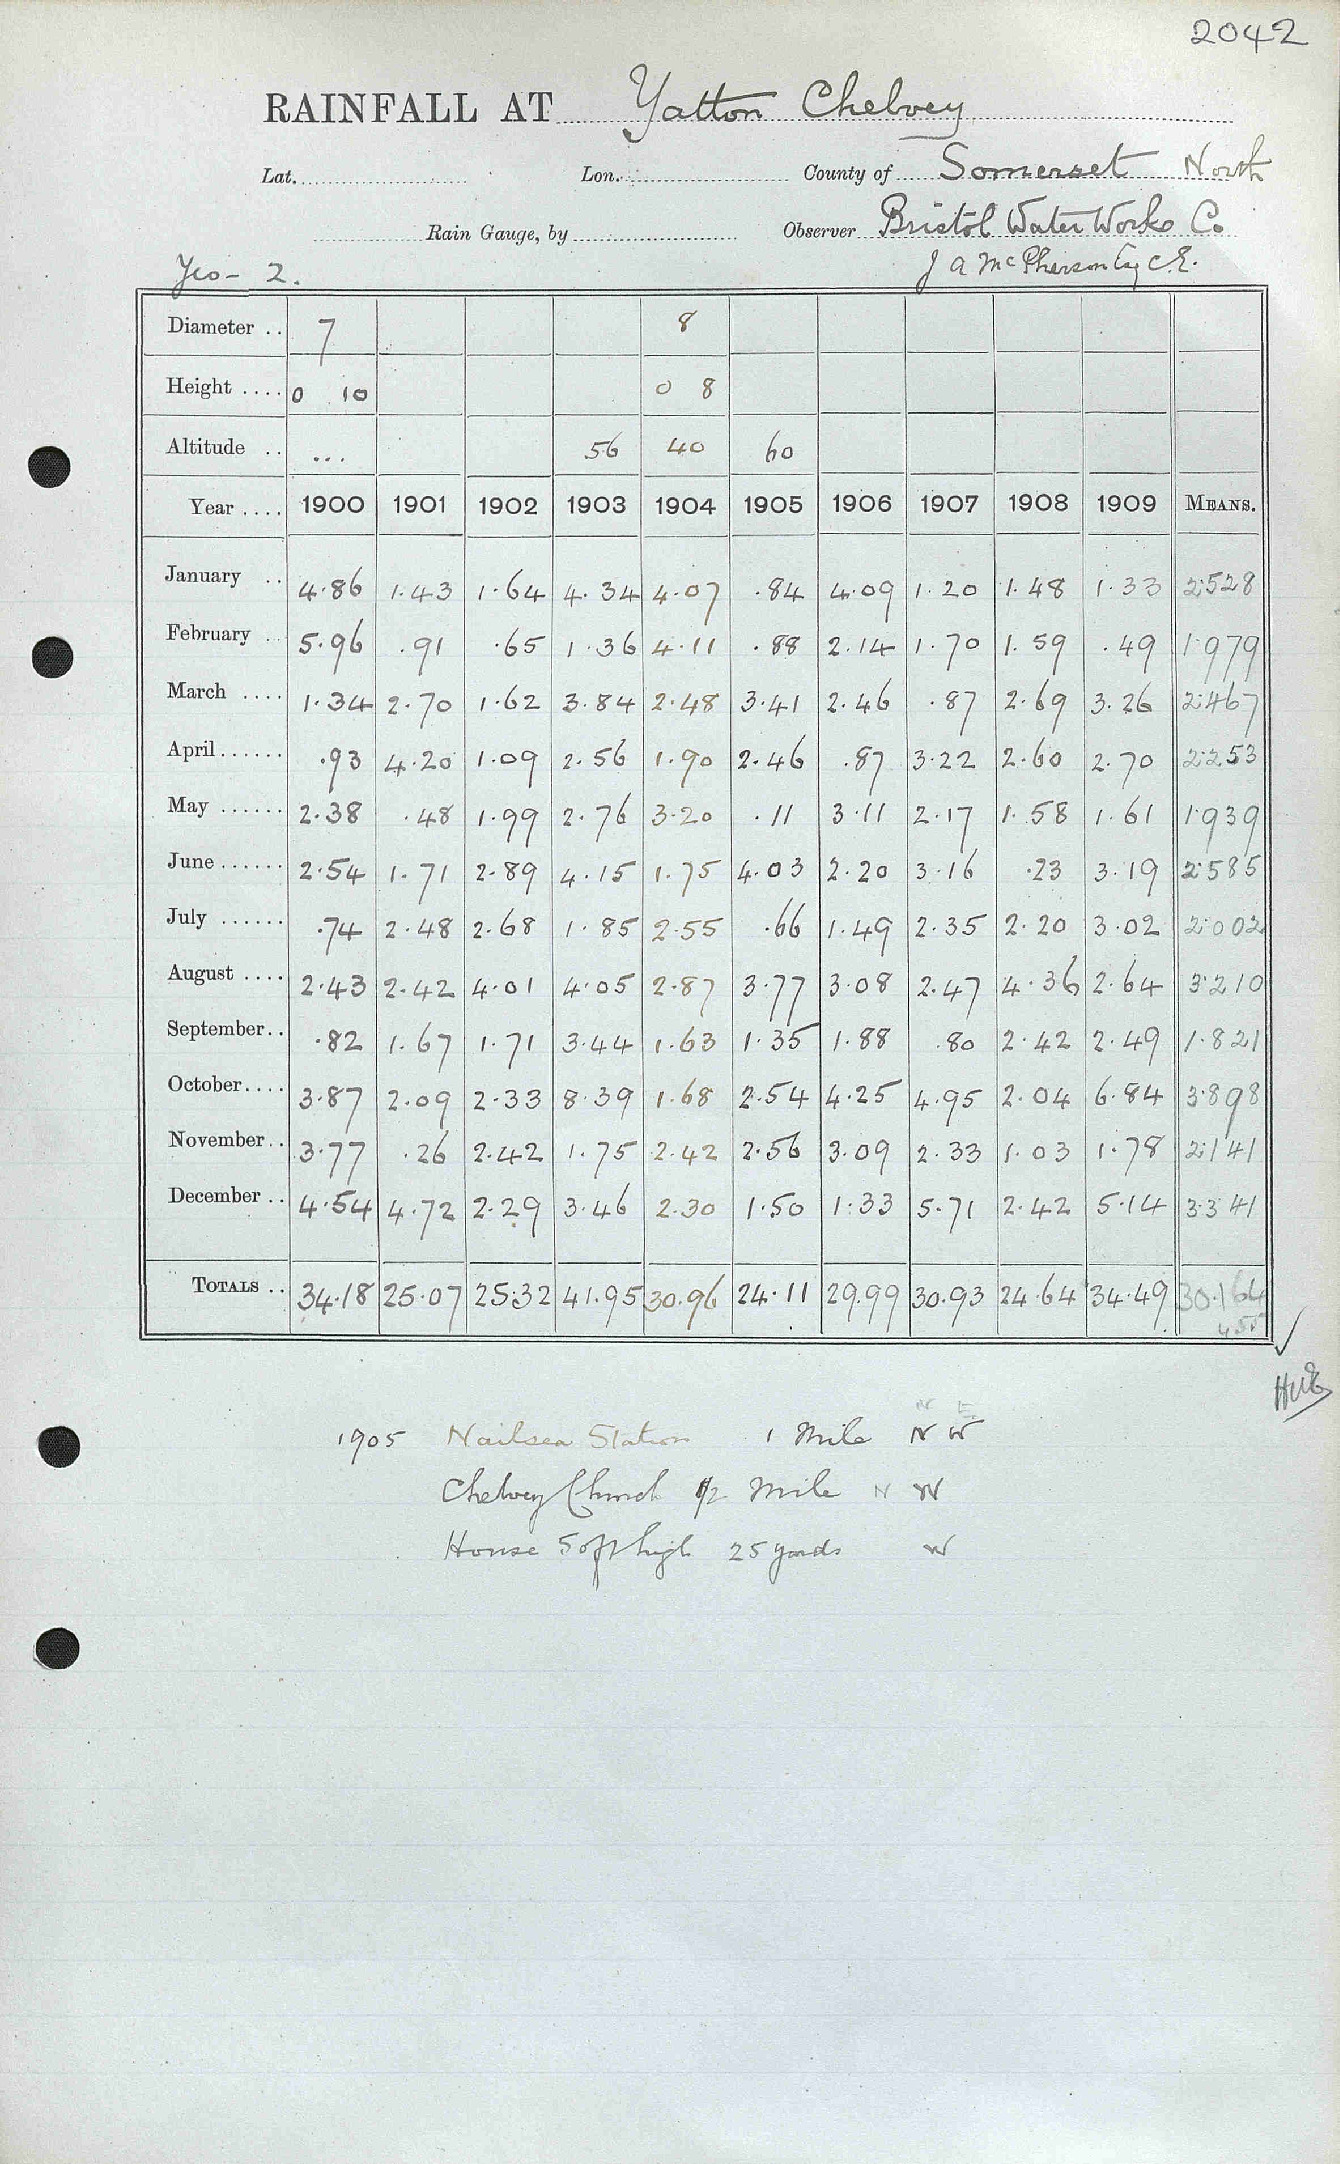 2042
RAINFALL AT Yatton Chelvey
Lat. Lon. County of Somerset North
Rain Gauge, by Observer Bristol Water Works Co
Yeo - 2. J A McPherson Esq C.E.
Diameter .. 7 8
Height .... 0 10 0 8
Altitude .. ... 56 40 60
Year .... 1900 1901 1902 1903 1904 1905 1906 1907 1908 1909 MEANS.
January .. 4.86 1.43 1.64 4.34 4.07 .84 4.09 1.20 1.48 1.33 2.528
February .. 5.96 .91 .65 1.36 4.11 .88 2.14 1.70 1.59 .49 1.979
March .... 1.34 2.70 1.62 3.84 2.48 3.41 2.46 .87 2.69 3.26 2.467
April ...... .93 4.20 1.09 2.56 1.90 2.46 .87 3.22 2.60 2.70 2.253
May ...... 2.38 .48 1.99 2.76 3.20 .11 3.11 2.17 1.58 1.61 1.939
June ...... 2.54 1.71 2.89 4.15 1.75 4.03 2.20 3.16 .23 3.19 2.585
July ...... .74 2.48 2.68 1.85 2.55 .66 1.49 2.35 2.20 3.02 2.002
August .... 2.43 2.42 4.01 4.05 2.87 3.77 3.08 2.47 4.36 2.64 3.210
September .. .82 1.67 1.71 3.44 1.63 1.35 1.88 .80 2.42 2.49 1.821
October .... 3.87 2.09 2.33 8.39 1.68 2.54 4.25 4.95 2.04 6.84 3.898
November .. 3.77 .26 2.42 1.75 2.42 2.56 3.09 2.33 1.03 1.78 2.141
December .. 4.54 4.72 2.29 3.46 2.30 1.50 1.33 5.71 2.42 5.14 3.341
TOTALS .. 34.18 25.07 25.32 41.95 30.96 24.11 29.99 30.93 24.64 34.49 30.164
N E
1905 Nailsea Station 1 Mile N W
Chelvey Church 1/2 Mile N W
House 50ft high 25 yards W